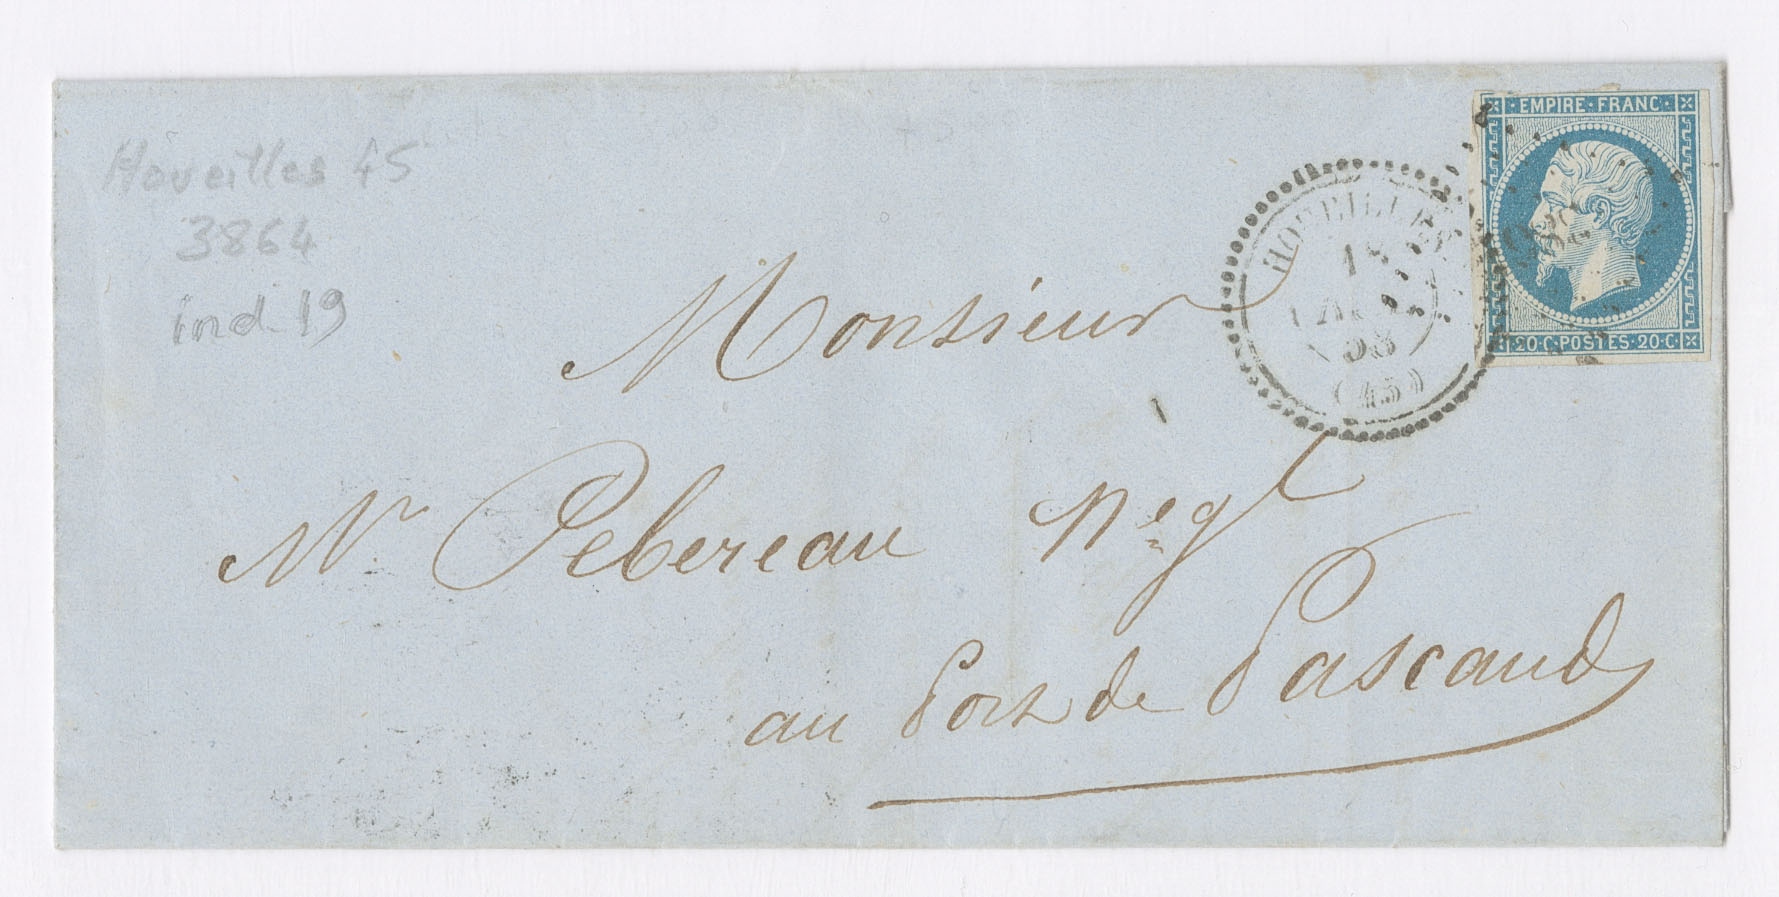 Houeilles 45
3864
ind 19
EMPIRE · FRANC ·
20 · C · POSTES · 20 · C
HOUEILLES
18
58
(45)
Monsieur
Mr Pebereau Negt
au Port de Pascaud